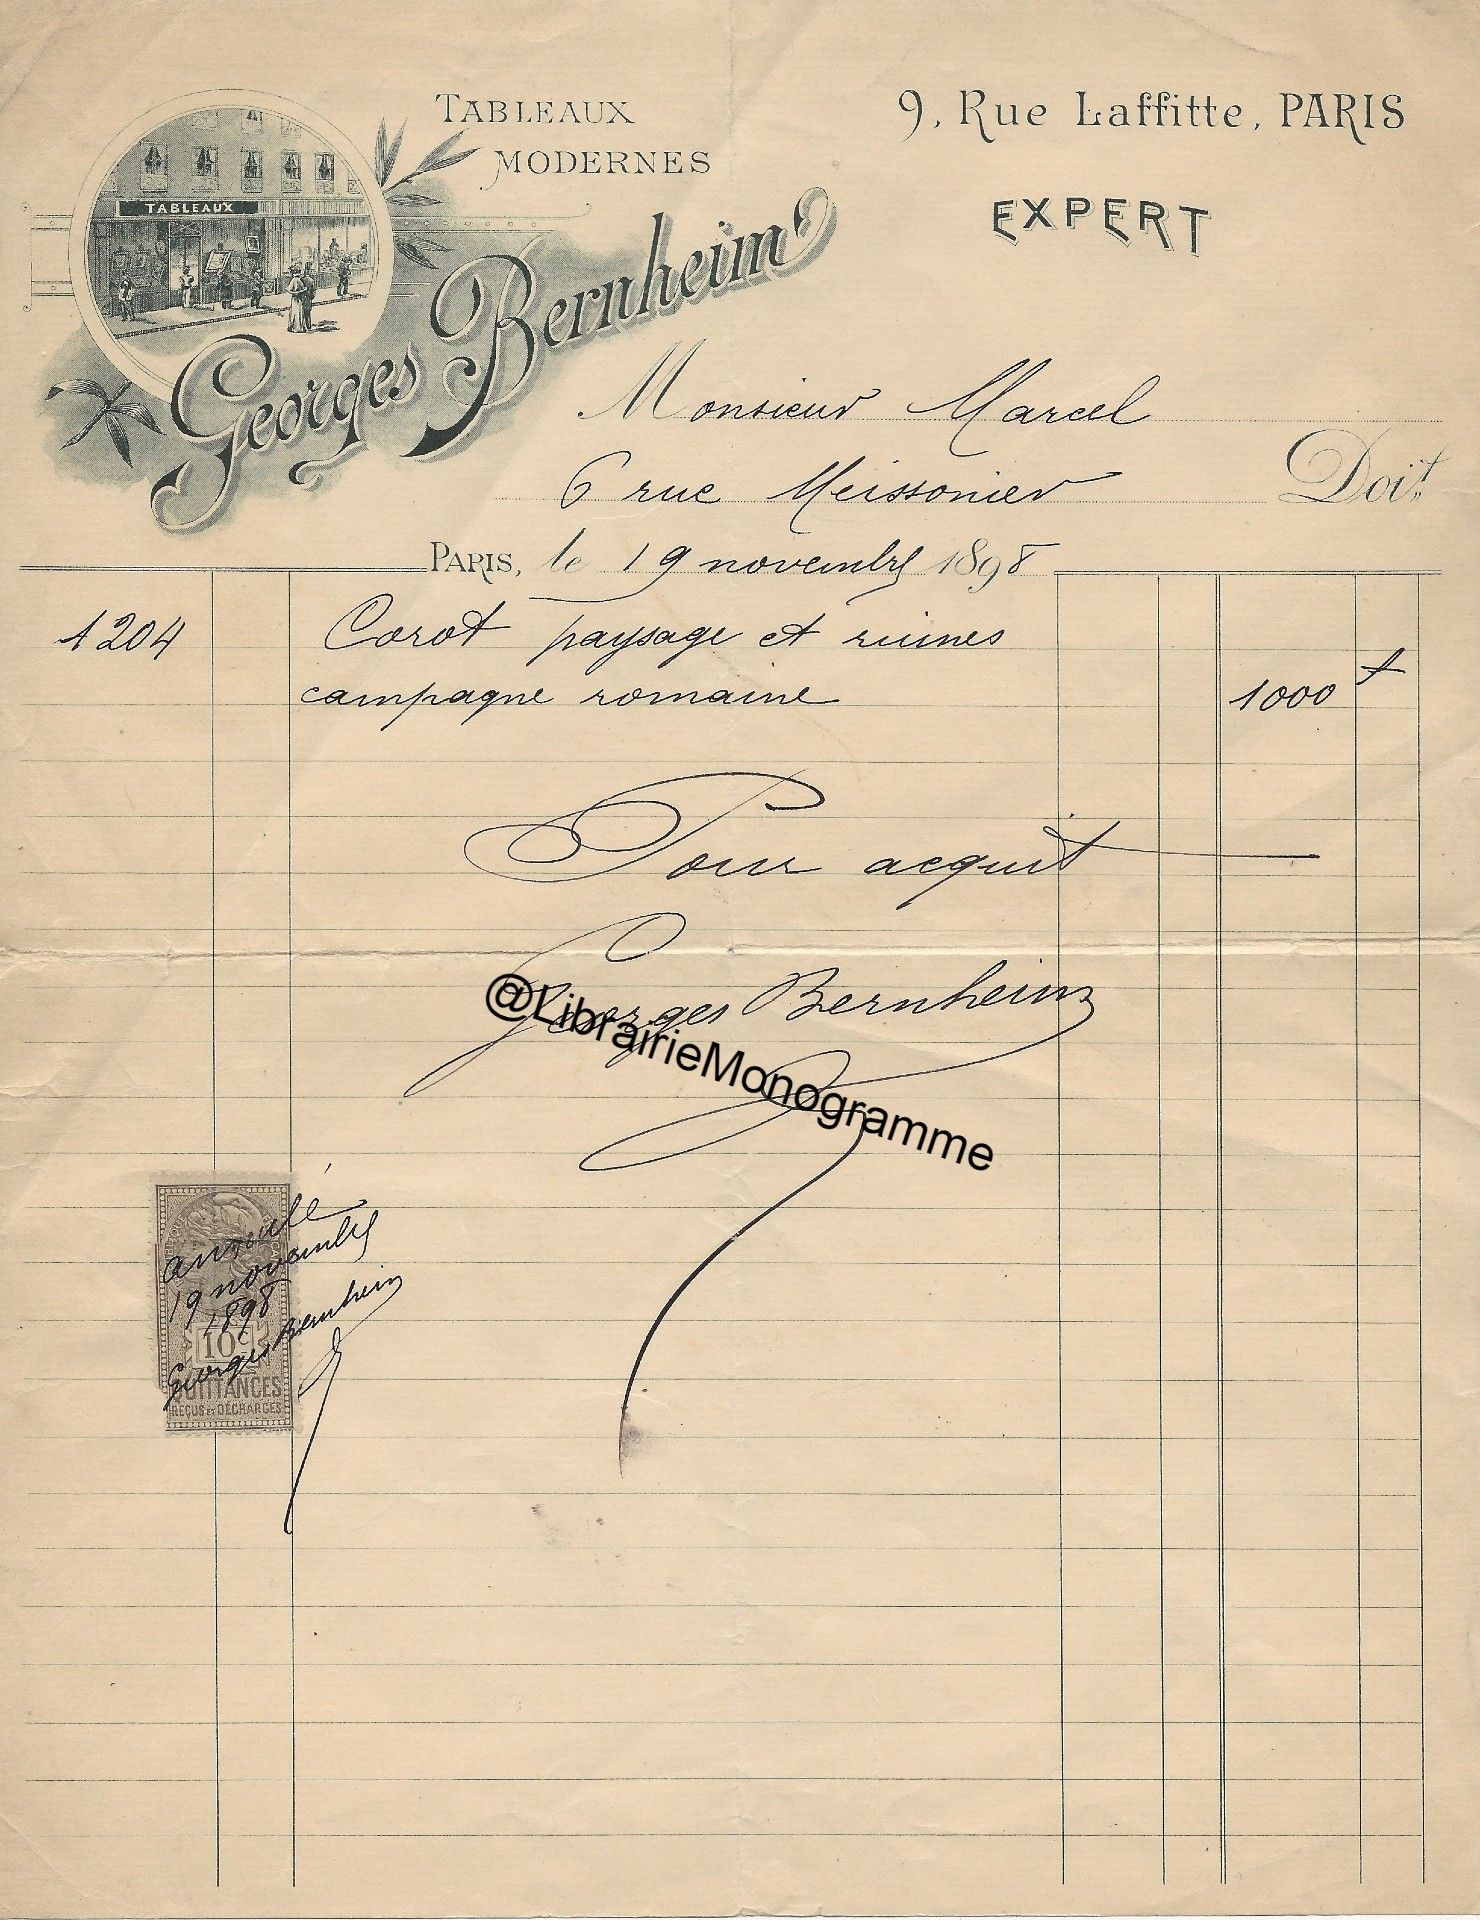 TABLEAUX
MODERNES
9, Rue Laffitte, PARIS
EXPERT
TABLEAUX
Georges Bernheim
Monsieur Marcel
6 rue Meissonier
Doit
PARIS, le 19 novembre 1898
1204 Corot paysage et ruines
campagne romaine 1000 f
Pour acquit
Georges Bernheim
@LibrairieMonogramme
annulé
19 novembre
1898
10c
Georges Bernheim
QUITTANCES
REÇUS ET DÉCHARGES